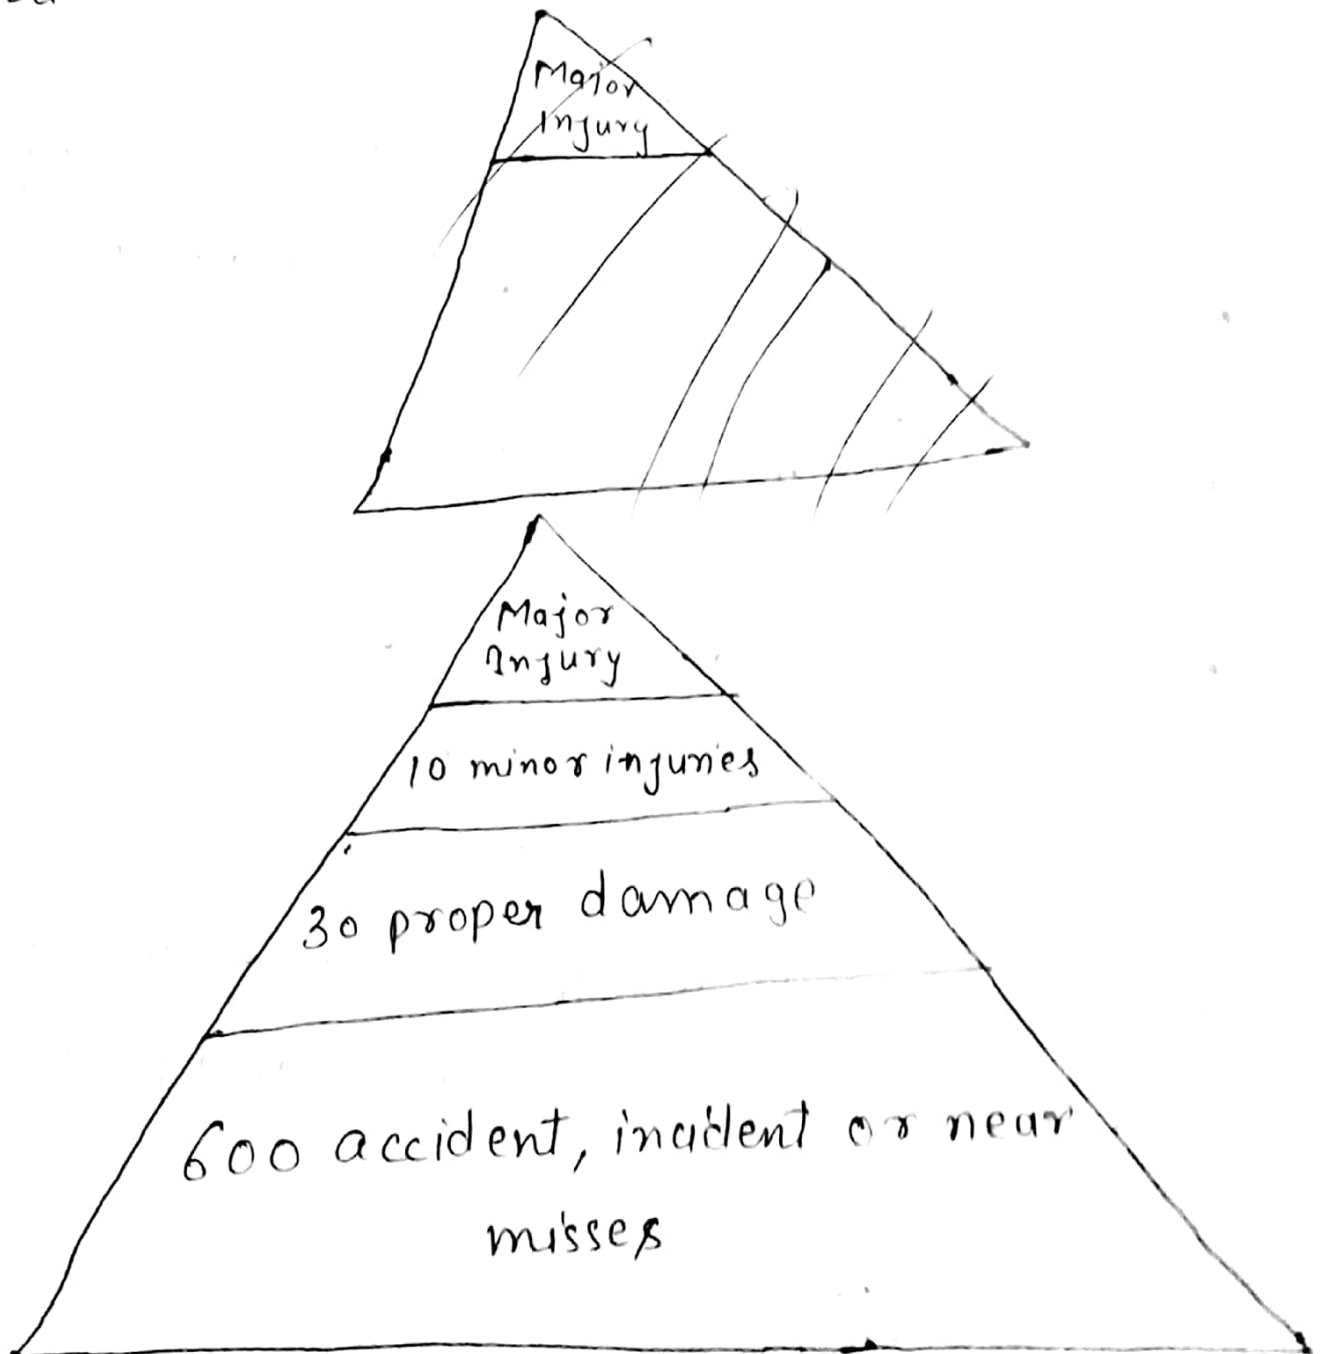 Major
Injury
Major
Injury
10 minor injuries
30 proper damage
600 accident, incident or near
misses